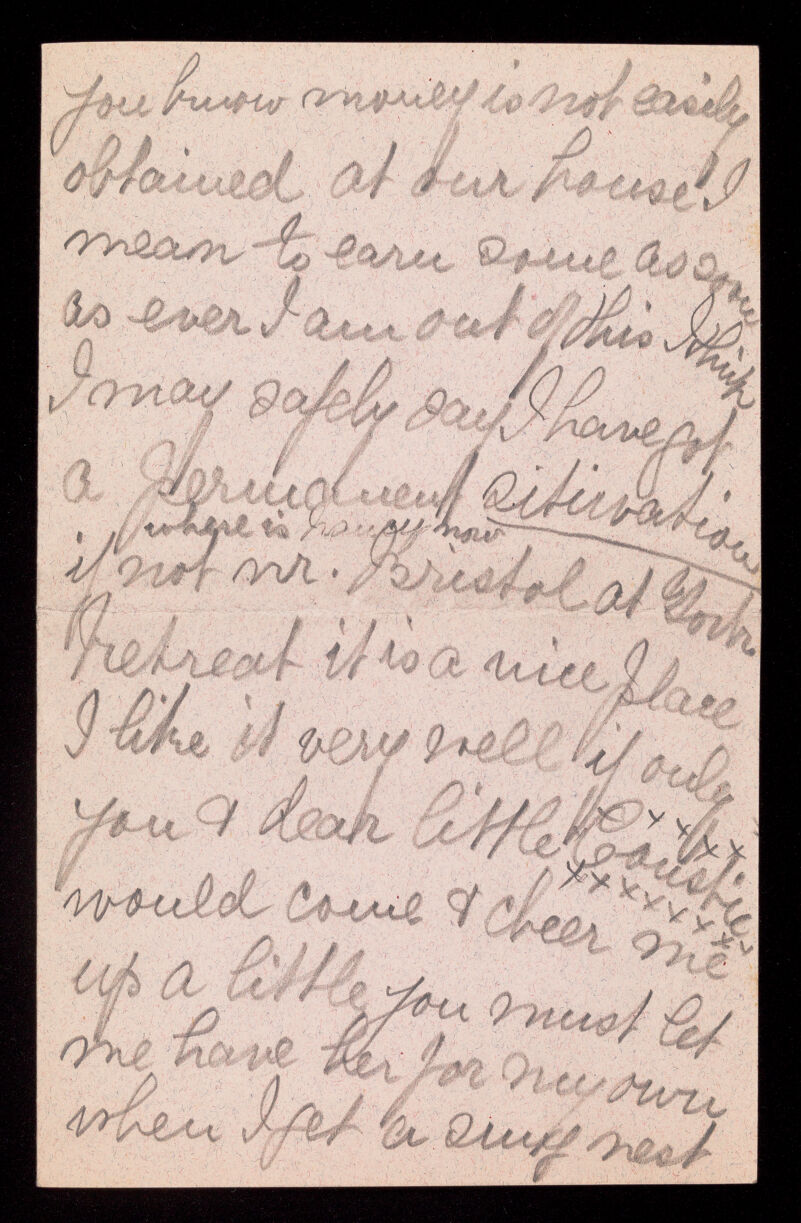 you know money is not easily
obtained at our house! I
mean to earn some as soon
as ever I am out of this I think
I may safely say I have got
a permanent sitirvation
where is now
if not nr. Bristol at
retreat it is a nice place
I like it very well if only
you & dear little Constie
would come & cheer me
up a little you must let
me have her for my own
when I get a snug nest